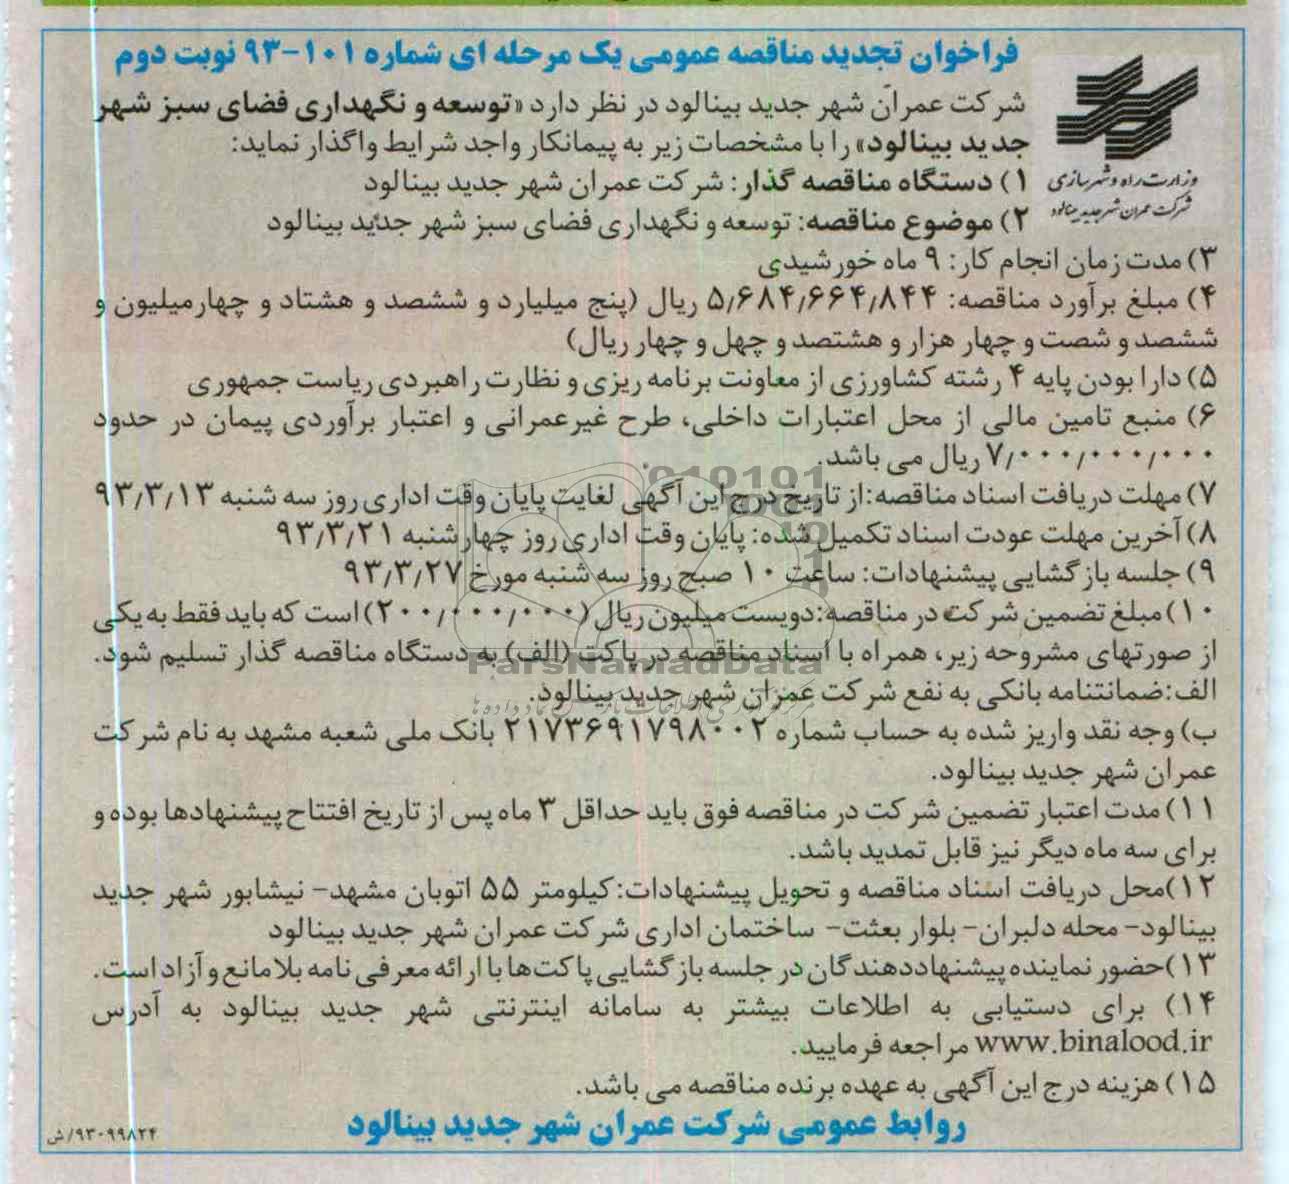 فراخوان تجدید مناقصه عمومی یک مرحله ای شماره ۱۰۱-۹۳ نوبت دوم
شرکت عمران شهر جدید بینالود در نظر دارد «توسعه و نگهداری فضای سبز شهر
جدید بینالود» را با مشخصات زیر به پیمانکار واجد شرایط واگذار نماید:
وزارت راه و شهرسازی
شرکت عمران شهر جدید بینالود
۱) دستگاه مناقصه گذار: شرکت عمران شهر جدید بینالود
۲) موضوع مناقصه: توسعه و نگهداری فضای سبز شهر جدید بینالود
۳) مدت زمان انجام کار: ۹ ماه خورشیدی
۴) مبلغ برآورد مناقصه: ۵٫۶۸۴٫۶۶۴٫۸۴۴ ریال (پنج میلیارد و ششصد و هشتاد و چهارمیلیون و
ششصد و شصت و چهار هزار و هشتصد و چهل و چهار ریال)
۵) دارا بودن پایه ۴ رشته کشاورزی از معاونت برنامه ریزی و نظارت راهبردی ریاست جمهوری
۶) منبع تامین مالی از محل اعتبارات داخلی، طرح غیرعمرانی و اعتبار برآوردی پیمان در حدود
۷٫۰۰۰٫۰۰۰٫۰۰۰ ریال می باشد.
۷) مهلت دریافت اسناد مناقصه: از تاریخ درج این آگهی لغایت پایان وقت اداری روز سه شنبه ۹۳٫۳٫۱۳
۸) آخرین مهلت عودت اسناد تکمیل شده: پایان وقت اداری روز چهارشنبه ۹۳٫۳٫۲۱
۹) جلسه بازگشایی پیشنهادات: ساعت ۱۰ صبح روز سه شنبه مورخ ۹۳٫۳٫۲۷
۱۰) مبلغ تضمین شرکت در مناقصه: دویست میلیون ریال (۲۰۰٫۰۰۰٫۰۰۰) است که باید فقط به یکی
از صورتهای مشروحه زیر، همراه با اسناد مناقصه در پاکت (الف) به دستگاه مناقصه گذار تسلیم شود.
ParsNamadData
الف: ضمانتنامه بانکی به نفع شرکت عمران شهر جدید بینالود.
ب) وجه نقد واریز شده به حساب شماره ۲۱۷۳۶۹۱۷۹۸۰۰۲ بانک ملی شعبه مشهد به نام شرکت
عمران شهر جدید بینالود.
۱۱) مدت اعتبار تضمین شرکت در مناقصه فوق باید حداقل ۳ ماه پس از تاریخ افتتاح پیشنهادها بوده و
برای سه ماه دیگر نیز قابل تمدید باشد.
۱۲) محل دریافت اسناد مناقصه و تحویل پیشنهادات: کیلومتر ۵۵ اتوبان مشهد- نیشابور شهر جدید
بینالود- محله دلبران- بلوار بعثت- ساختمان اداری شرکت عمران شهر جدید بینالود
۱۳) حضور نماینده پیشنهاددهندگان در جلسه بازگشایی پاکت‌ها با ارائه معرفی نامه بلامانع و آزاد است.
۱۴) برای دستیابی به اطلاعات بیشتر به سامانه اینترنتی شهر جدید بینالود به آدرس
www.binalood.ir مراجعه فرمایید.
۱۵) هزینه درج این آگهی به عهده برنده مناقصه می باشد.
روابط عمومی شرکت عمران شهر جدید بینالود
۹۳۰۹۹۸۲۴/ش